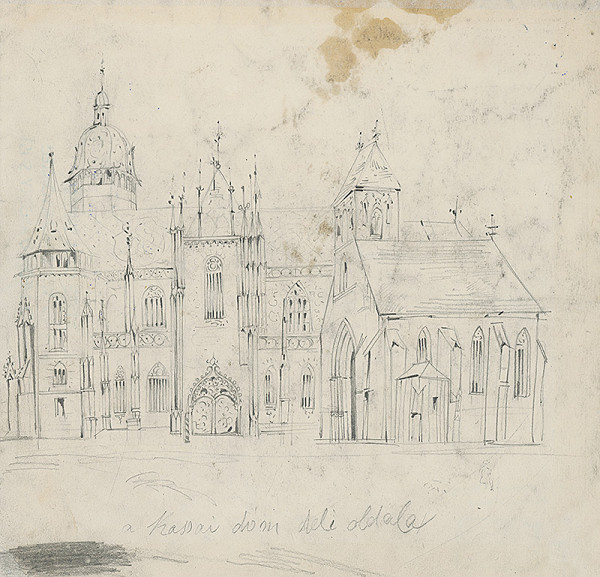 a kassai dóm déli oldala